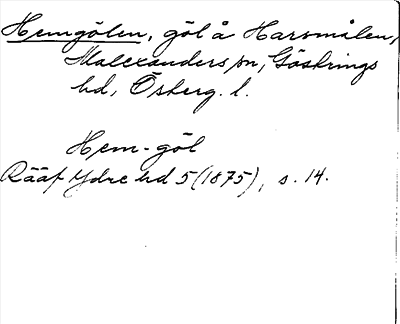 Hemgölen, göl å Harsmålen,
Malexanders sn, Göstrings
hd, Österg. l.
Hem-göl
Rääf Ydre hd 5 (1875), s. 14.